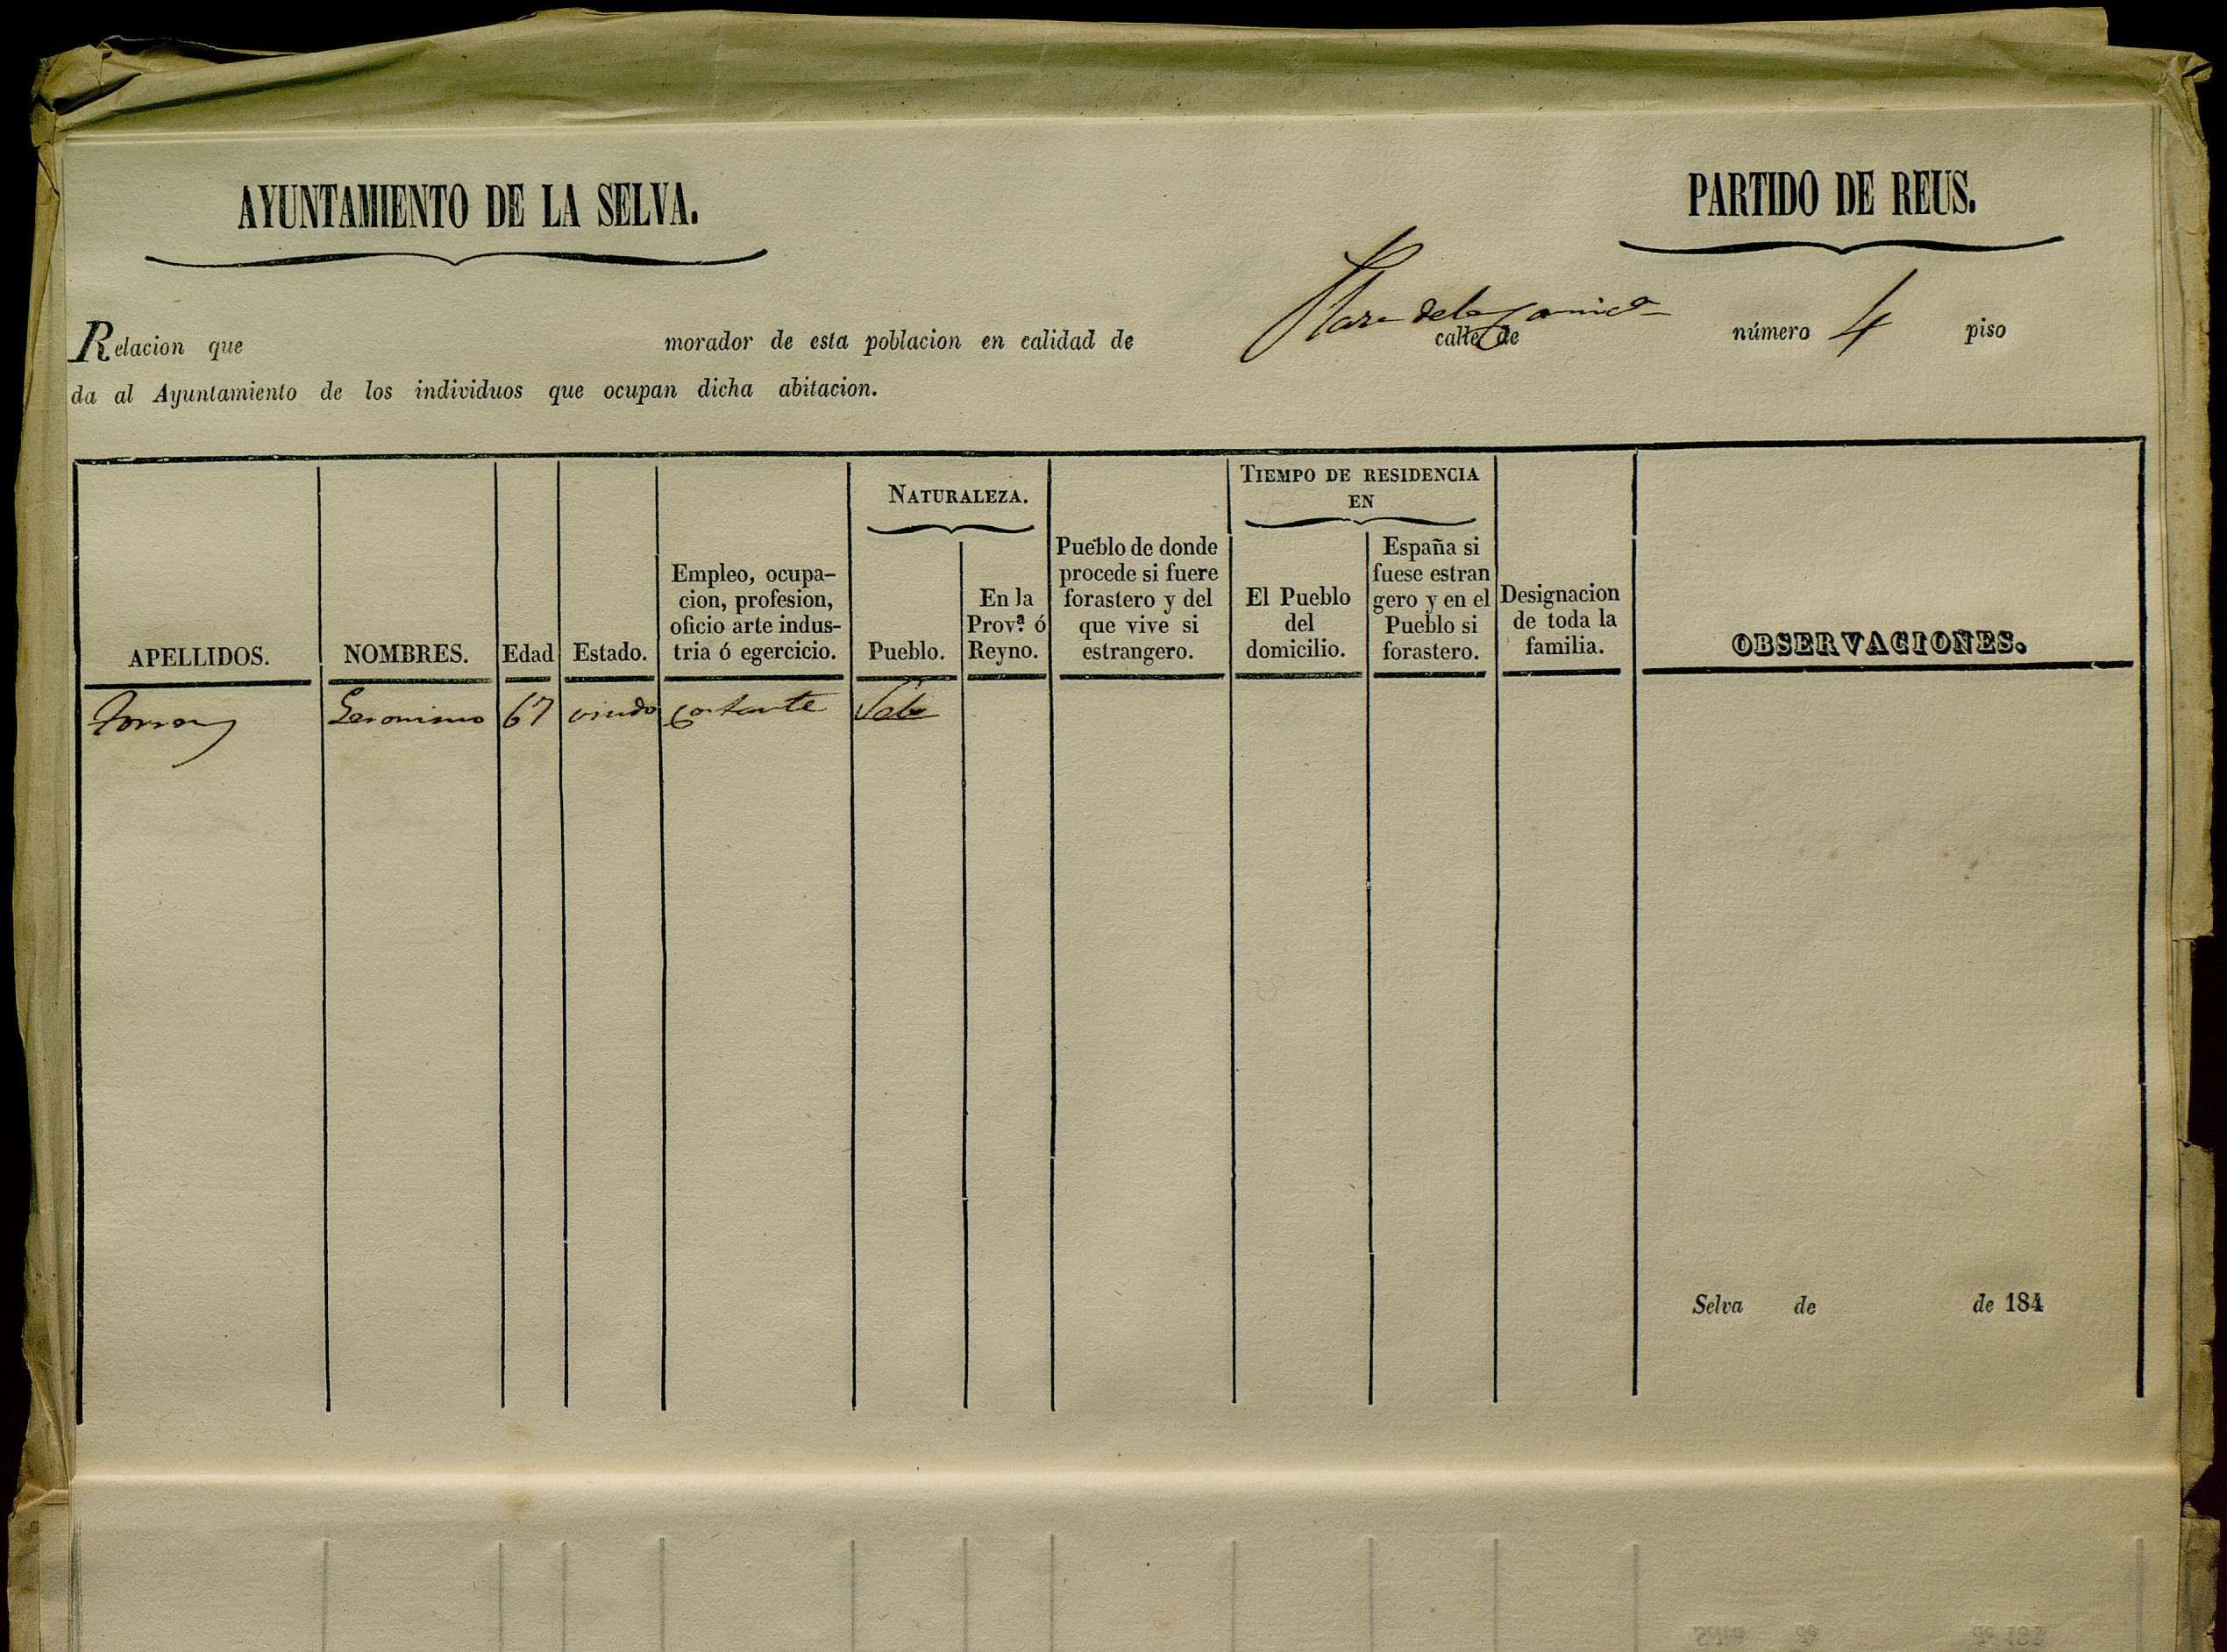 AYUNTAMIENTO DE LA SELVA.
PARTIDO DE REUS.
Plaza de la
Relacion que morador de esta poblacion en calidad de calle de número 4 piso
da al Ayuntamiento de los individuos que ocupan dicha abitacion.
APELLIDOS.
NOMBRES.
Edad
Estado.
Empleo, ocupa-
cion, profesion,
oficio arte indus-
tria ó egercicio.
NATURALEZA.
Pueblo.
En la
Prov.ª ó
Reyno.
Pueblo de donde
procede si fuere
forastero y del
que vive si
estrangero.
TIEMPO DE RESIDENCIA
EN
El Pueblo
del
domicilio.
España si
fuese estran
gero y en el
Pueblo si
forastero.
Designacion
de toda la
familia.
OBSERVACIONES.
Geronimo 67 viudo Cortante Selva
Selva de de 184